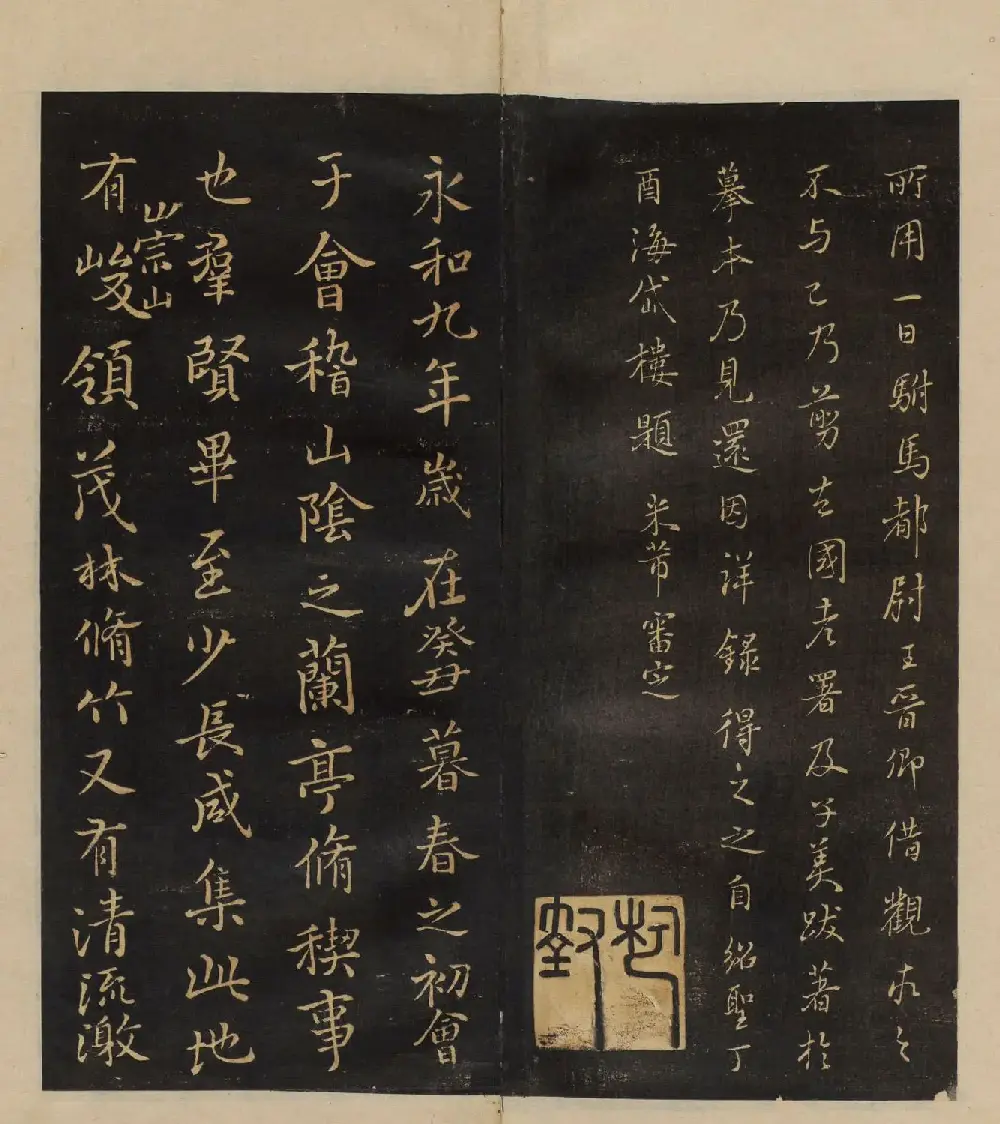 所用一日駙馬都尉王晉卿借觀求之
不与已乃剪去國老署及子美跋著於
摹本乃見還因詳錄得之之自紹聖丁
酉海岱樓題 米芾審定
永和九年歲在癸丑暮春之初會
于會稽山陰之蘭亭脩稧事
也羣賢畢至少長咸集此地
有崇山峻領茂林脩竹又有清流激